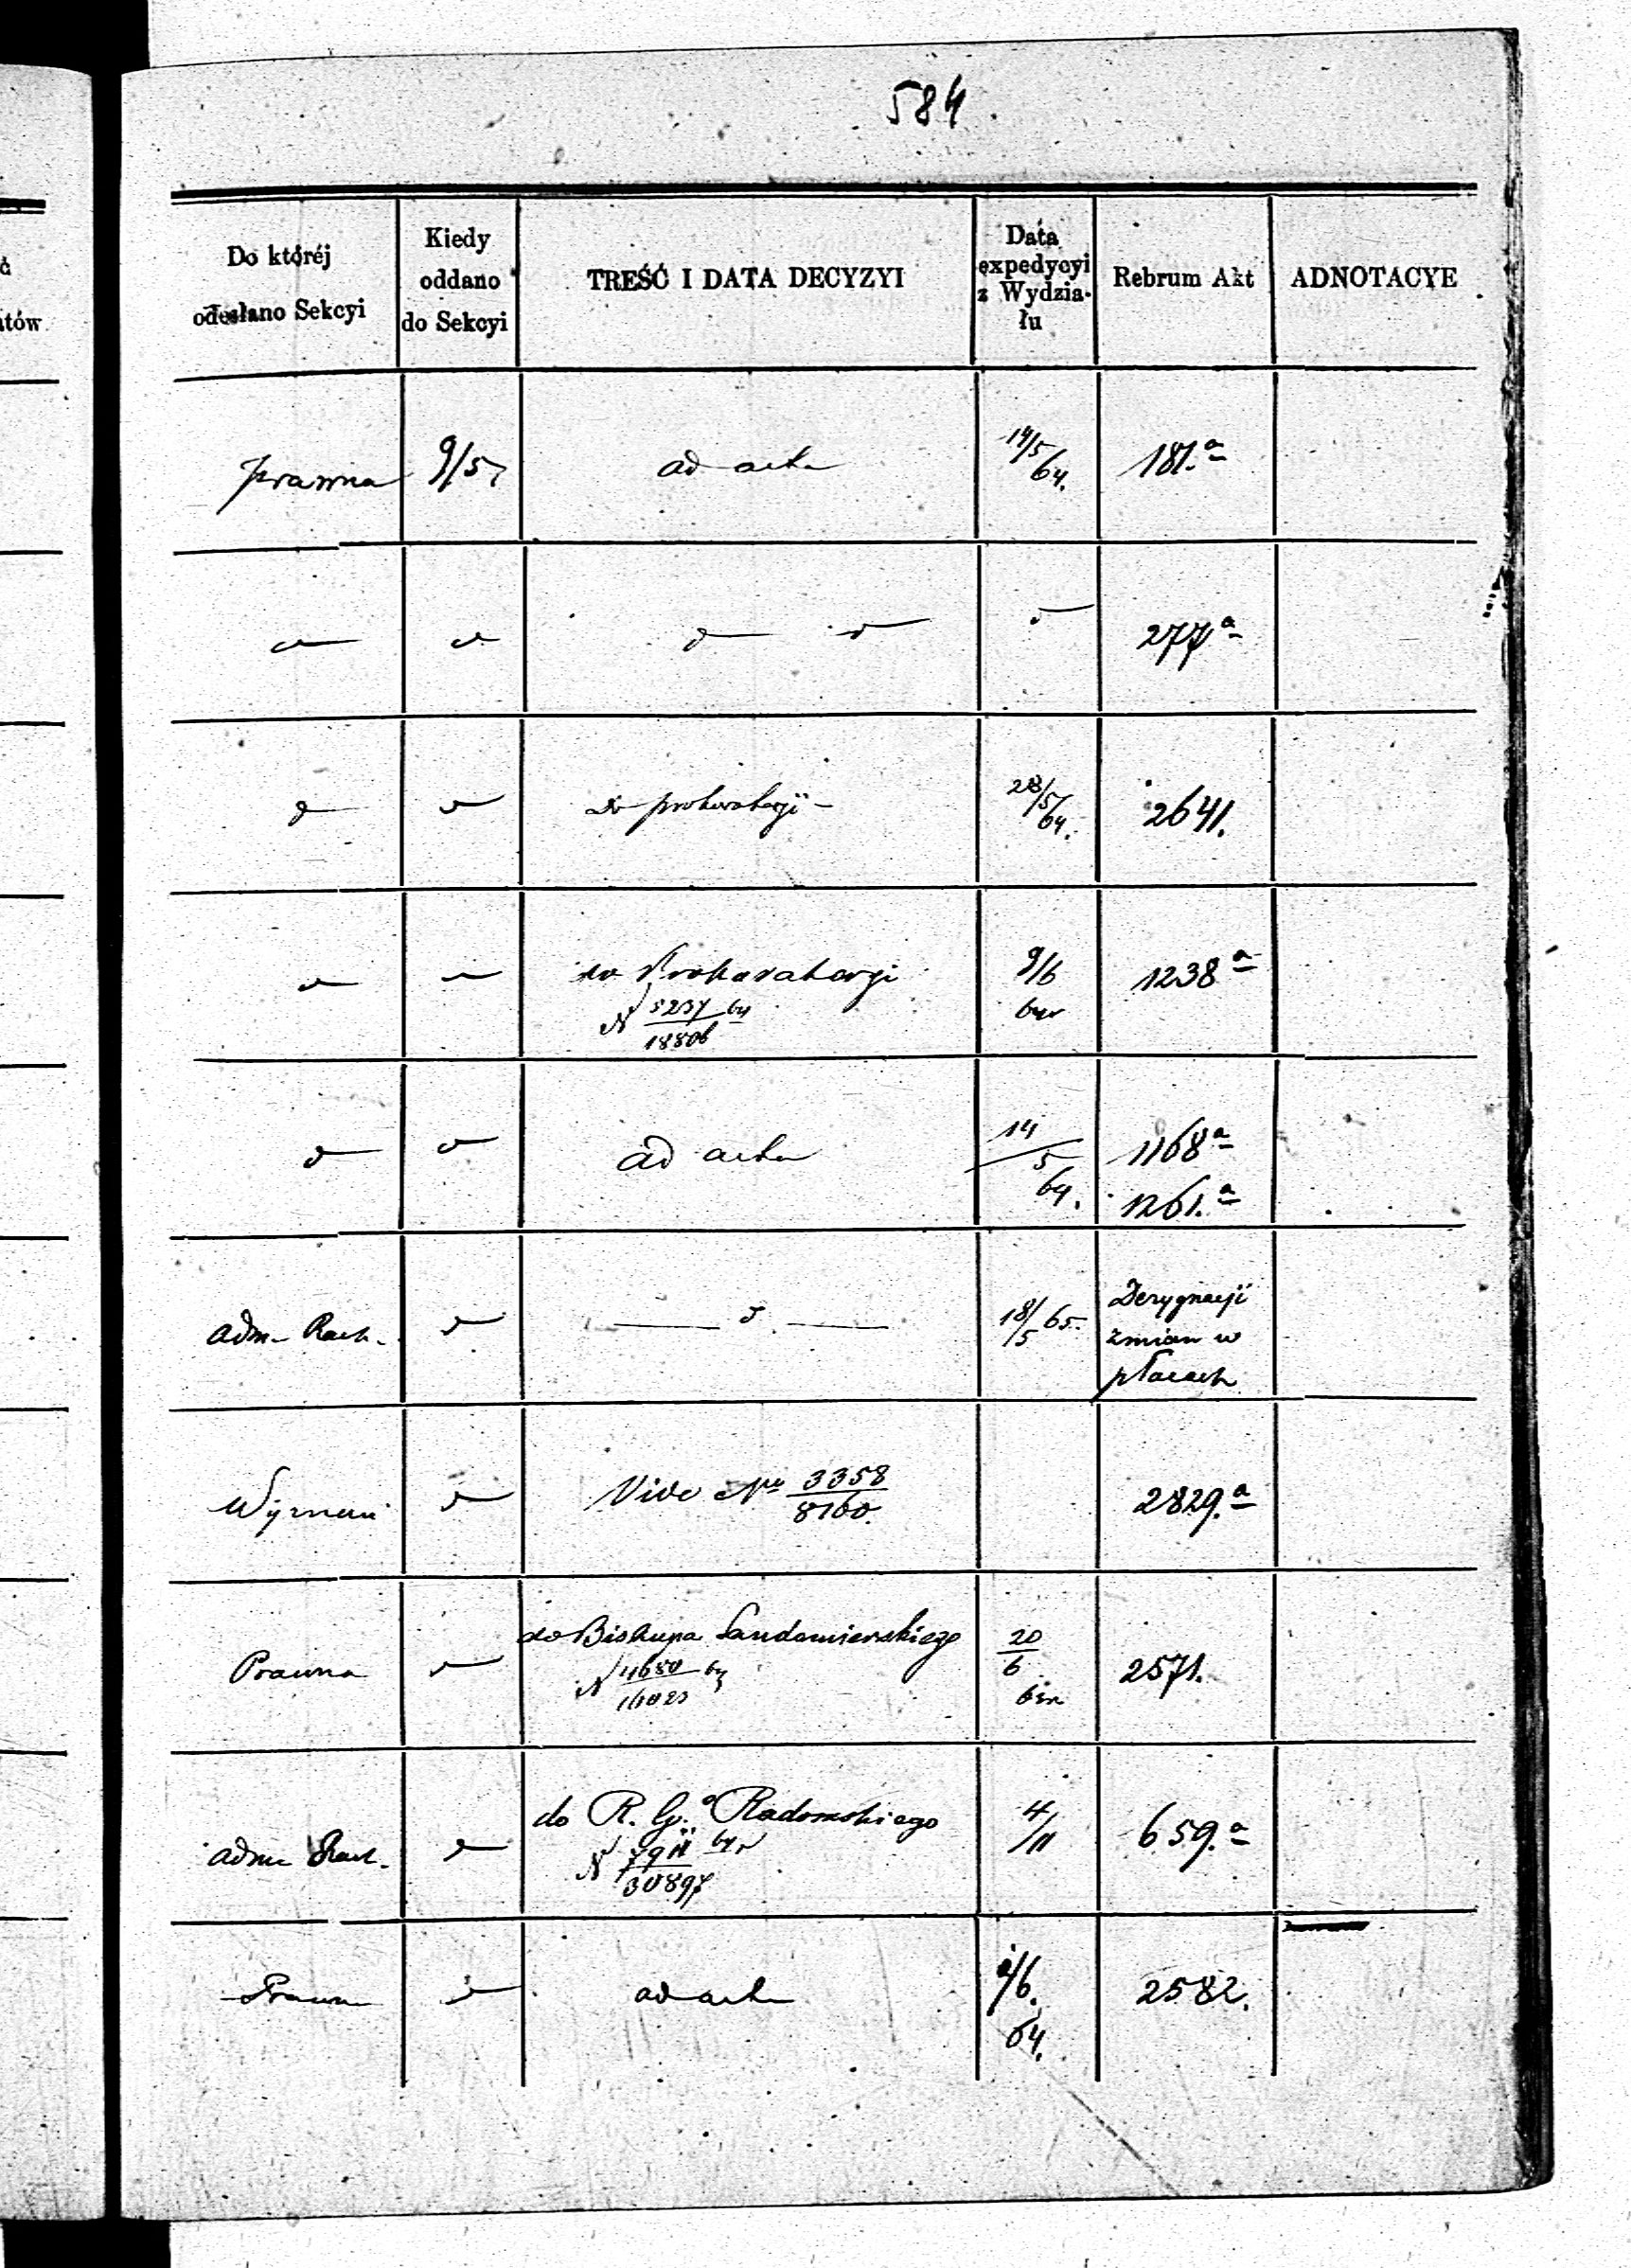 584.
ć
atów
Do któréj
odesłano Sekcyi
Kiedy
oddano
do Sekcyi
TREŚĆ I DATA DECYZYI
Data
expedycyi
z Wydzia-
łu
Rebrum Akt
ADNOTACYE
prawna 9/5 ad acta 14/5 64. 181.a
277a
do prokuratoryi 28/5 64. 2641.
do Prokuratoryi 9/6 1238a
N 5237 64
18806
ad acta 14/5 64. 1168a
1261.a
adm. Rach. 18/5 65. Dezygnacji
zmian w
płacach
Wyznań Vide Nr 3358 2829.a
8160.
Prawna do Biskupa Sandomierskiego 20/6 2571.
N 4680 64
16023
adm Rach. do R. G. Radomskiego 4/11 659.a
N 7911 64
30897
Prawna ad acta 2/6. 64. 2582.